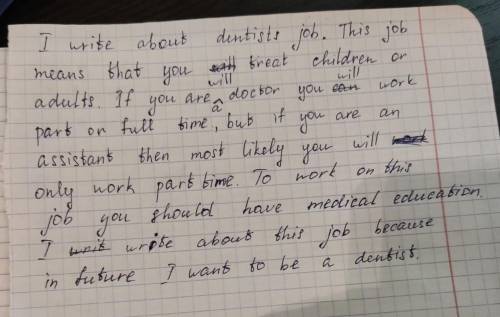 I write about dentists job. This job
means that you will treat children or
adults. If you are a doctor you will work
part or full time, but if you are an
assistant then most likely you will
only work part time. To work on this
job you should have medical education.
I write about this job because
in future I want to be a dentist.